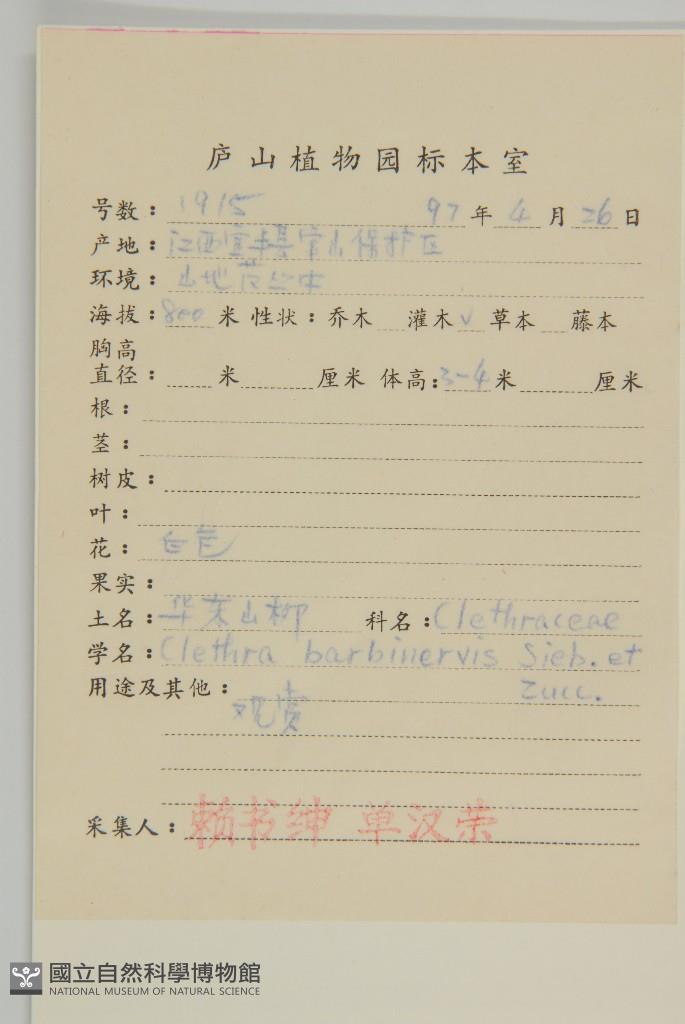 庐山植物园标本室
号数：1915 97年4月26日
产地：江西宜丰县官山保护区
环境：山地 丛林
海拔：800米 性状：乔木 灌木√ 草本 藤本
胸高
直径： 米 厘米 体高：3-4米 厘米
根：
茎：
树皮：
叶：
花：白色
果实：
土名：华东山柳 科名：Clethraceae
学名：Clethra barbinervis Sieb. et
用途及其他： Zucc.
观赏
采集人：赖书绅 单汉荣
國立自然科學博物館
NATIONAL MUSEUM OF NATURAL SCIENCE